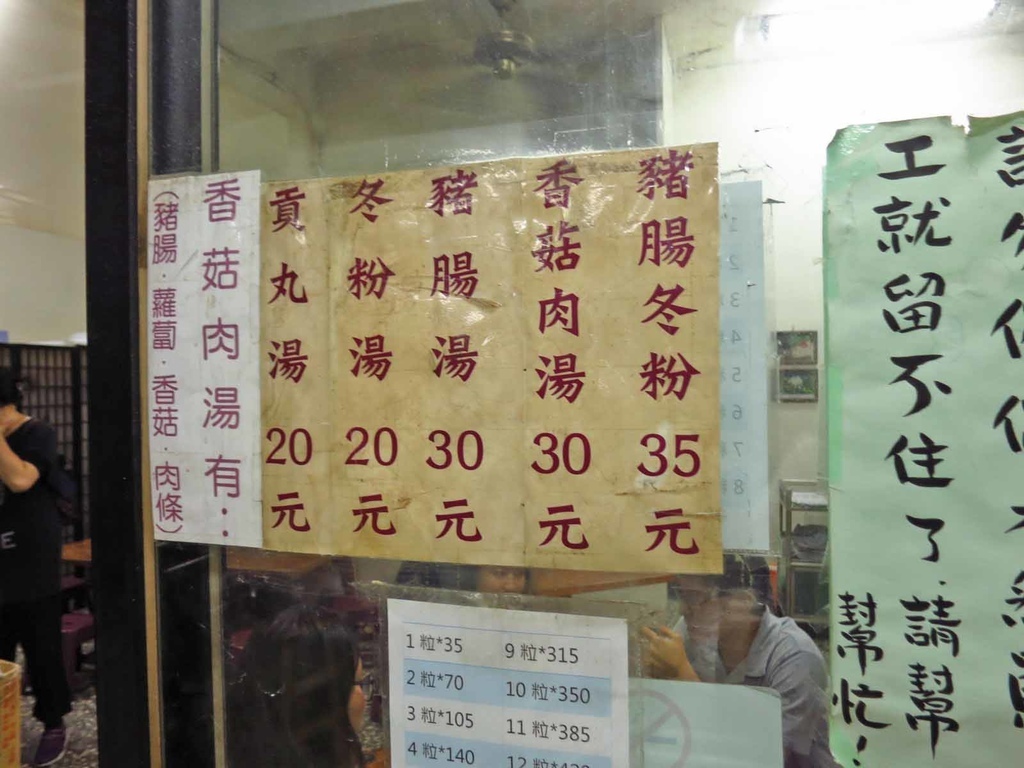 工就留不住了.請幫
幫忙!
豬腸冬粉 35元
香菇肉湯 30元
豬腸湯 30元
冬粉湯 20元
貢丸湯 20元
香菇肉湯有:
(豬腸.蘿蔔.香菇.肉條)
1 粒*35
2 粒*70
3 粒*105
4 粒*140
9 粒*315
10 粒*350
11 粒*385